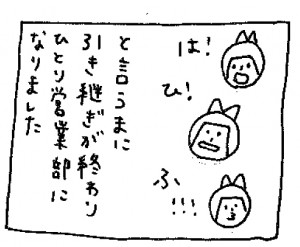 は!
ひ!
ふ
!!!
と言うまに
引き継ぎが終わり
ひとり営業部に
なりました